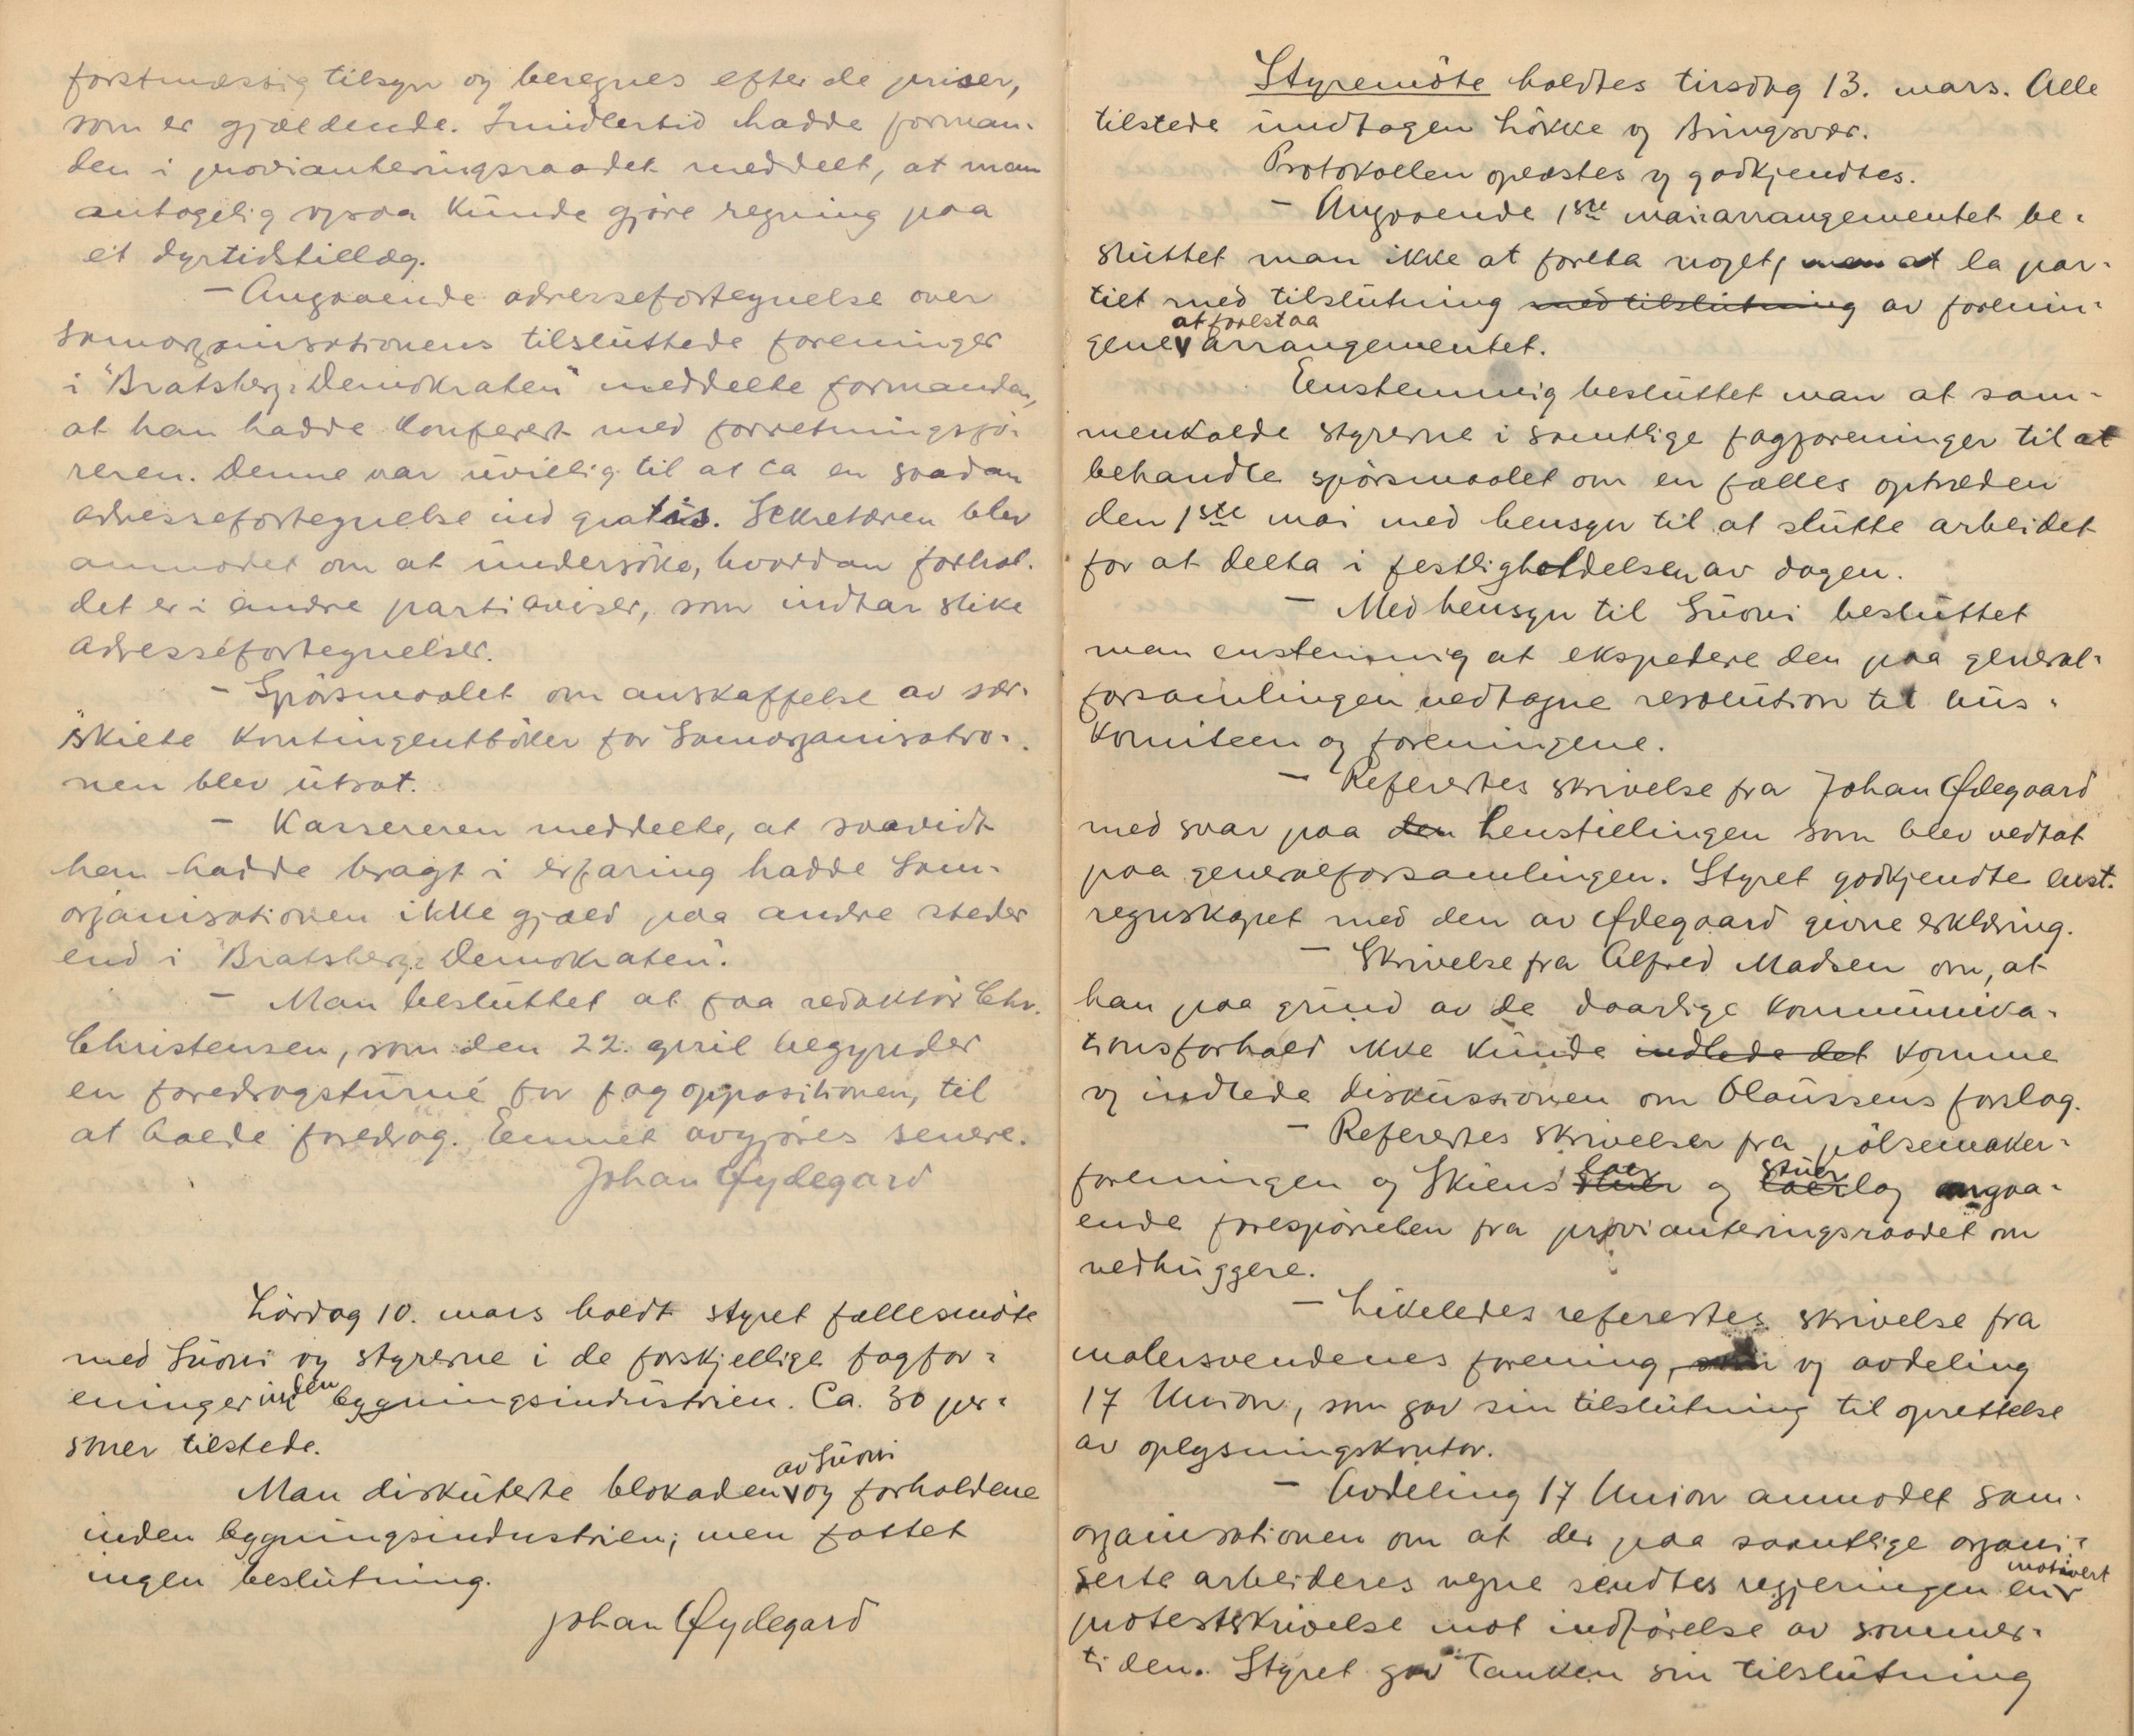 forstmæssig tilsyn og beregnes efter de priser,
som er gjældende. Imidlertid hadde forman-
den i provianteringsraadet meddelt, at man
antagelig ogsaa kunde gjøre regning paa
et dyrtidstillæg.
- Angaaende adressefortegnelse over
samorganisationens tilsluttede foreninger
i "Bratsberg-Demokraten" meddelte formanden,
at han hadde konferert med forretningsfø-
reren. Denne var uvillig til at ta en saadan
adressefortegnelse ind gratis. Sekretæren blev
anmodet om at undersøke, hvordan forhol-
det er i andre partiaviser, som indtar slike
adressefortegnelser.
- Spørsmaalet om anskaffelse av sær-
skilte kontingentbøker for Samorganisatio-
nen blev utsat.
- Kassereren meddelte, at saavidt
han hadde bragt i erfaring hadde Sam-
organisationen ikke gjæld paa andre steder
end i "Bratsberg-Demokraten".
- Man besluttet at faa redaktør Chr.
Christensen, som den 22. april begynder
en foredragsturné for fagoppositionen, til
at holde foredrag. Emnet avgjøres senere.
Johan Øydegard
Lørdag 10. mars holdt styret fællesmøte
med Suoni og styrerne i de forskjellige fagfor-
eninger inden bygningsindustrien. Ca. 30 per-
soner tilstede.
Man diskuterte blokaden av Suoni og forholdene
inden bygningsindustrien; men fattet
ingen beslutning.
Johan Øydegard
Styremøte holdtes tirsdag 13. mars. Alle
tilstede undtagen Løkke og Bringsvær.
Protokollen oplæstes og godkjendtes.
- Angaaende 1ste maiarrangementet be-
sluttet man ikke at foreta noget, men at la par-
tiet med tilslutning med tilslutning av forenin-
gene at forestaa arrangementet.
Enstemmig besluttet man at sam-
menkalde styrerne i samtlige fagforeninger til at
behandle spørsmaalet om en fælles optræden
den 1ste mai med hensyn til at slutte arbeidet
for at delta i festligholdelsen av dagen.
- Med hensyn til Suoni besluttet
man enstemmig at ekspedere den paa general-
forsamlingen vedtagne resolution til hus-
komiteen og foreningene.
- Referertes skrivelse fra Johan Ødegaard
med svar paa den henstillingen som blev vedtat
paa generalforsamlingen. Styret godkjendte enst.
regnskapet med den av Ødegaard givne erklæring.
- Skrivelse fra Alfred Madsen om, at
han paa grund av de daarlige kommunika-
tionsforhold ikke kunde indlede det komme
og indlede diskussionen om Olaussens forslag.
- Referertes skrivelser fra pølsemaker-
foreningen og Skiens stuer laer og laer stuerlag angaa-
ende forespørselen fra provianteringsraadet om
vedhuggere.
- Likeledes referertes skrivelse fra
malersvendenes forening, som og avdeling
17 Union, som gav sin tilslutning til oprettelse
av oplysningskontor.
- Avdeling 17 Union anmodet sam-
organisationen om at der paa samtlige organi-
serte arbeideres vegne sendtes regjeringen en motivert
protestskrivelse mot indførelse av sommer-
tiden. Styret gav tanken sin tilslutning